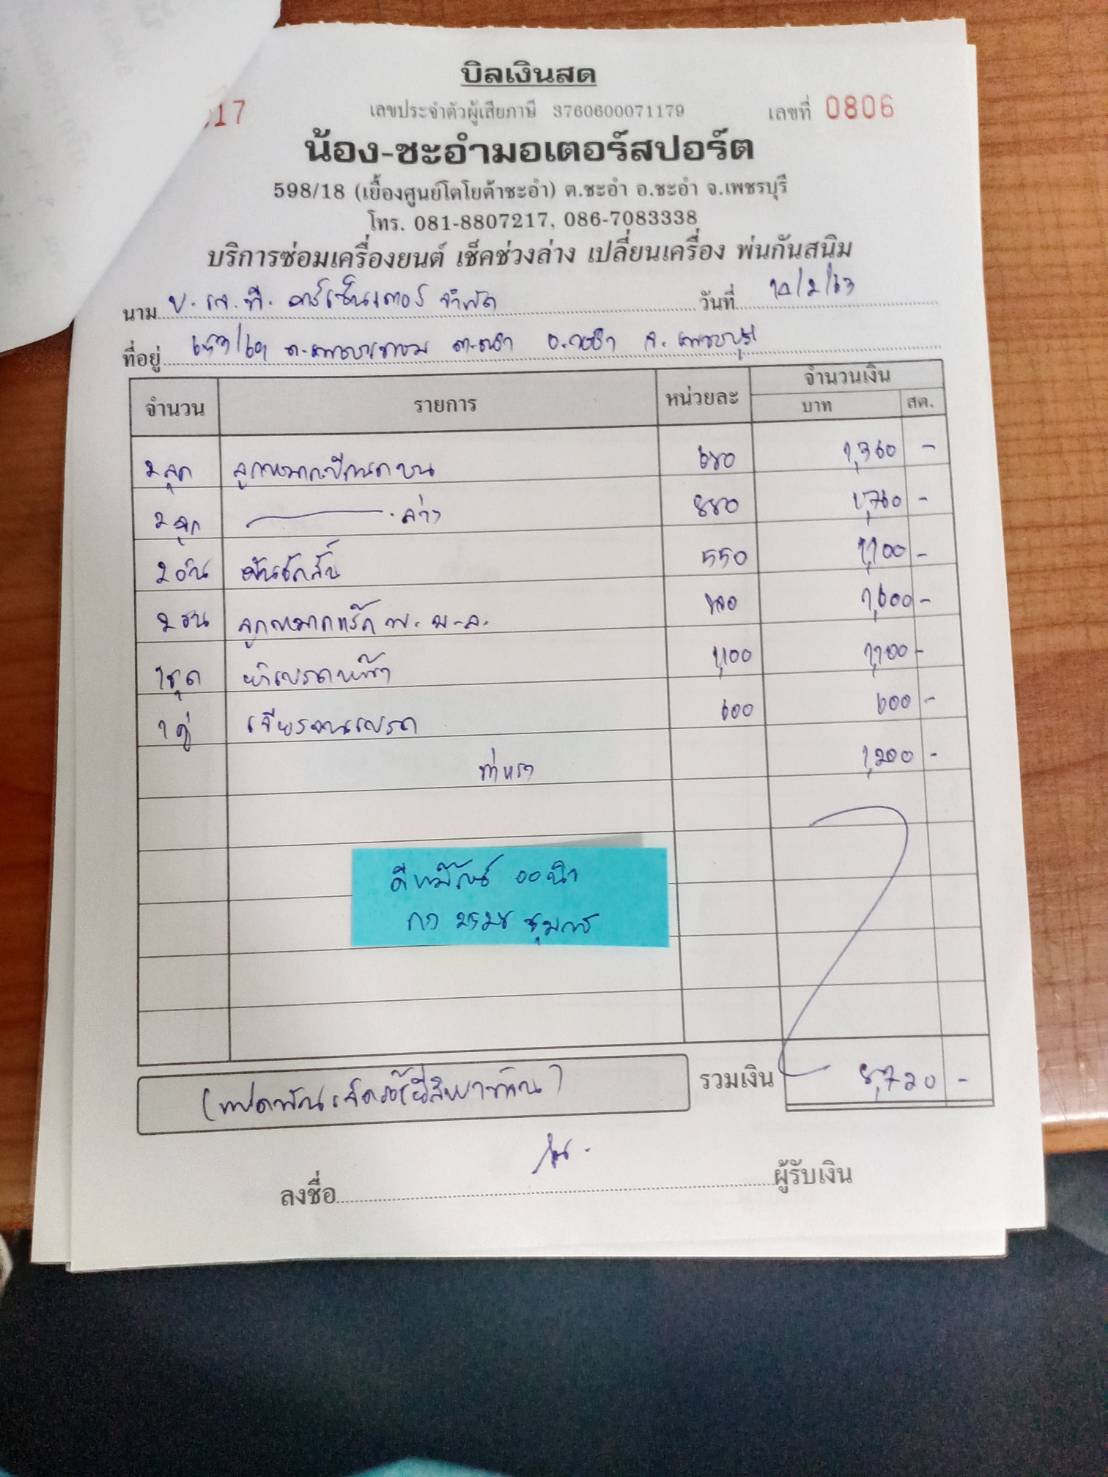 บิลเงินสด
17 เลขประจำตัวผู้เสียภาษี 3760600071179 เลขที่ 0806
น้อง-ชะอำมอเตอร์สปอร์ต
598/18 (เยื้องศูนย์โตโยต้าชะอำ) ต.ชะอำ อ.ชะอำ จ.เพชรบุรี
โทร. 081-8807217, 086-7083338
บริการซ่อมเครื่องยนต์ เช็คช่วงล่าง เปลี่ยนเครื่อง พ่นกันสนิม
นาม บ. เจ.ที. คาร์เซ็นเตอร์ จำกัด วันที่ /2/63
ที่อยู่ ถ.เพชรเกษม ต.ชะอำ อ.ชะอำ จ.เพชรบุรี
จำนวน รายการ หน่วยละ จำนวนเงิน
บาท สต.
2 ลูก ลูกหมากปีกนกบน 680 1,360 -
2 ลูก ล่าง 880 1,760 -
2 อัน คันชักสั้น 550 1,100 -
2 อัน ลูกหมากแร็ค 800 1,600 -
1 ชุด ผ้าเบรคหน้า 1,100 1,100 -
1 คู่ เจียรจานเบรค 600 600 -
ค่าแรง 1,200 -
(แปดพันเจ็ดร้อยยี่สิบบาทถ้วน) รวมเงิน 8,720 -
ลงชื่อ ผู้รับเงิน